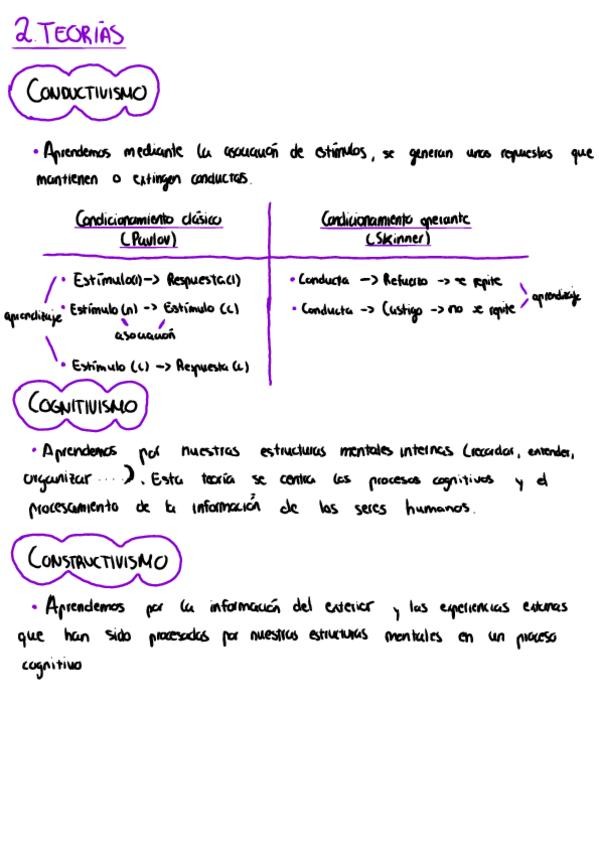 2. TEORÍAS
CONDUCTIVISMO
• Aprendemos mediante la asociación de estímulos, se generan unas repuestas que
mantienen o extingen conductas.
Condicionamiento clásico
(Pavlov)
Condicionamiento operante
(Skinner)
• Estímulo(i) -> Respuesta(i)
aprendizaje • Estímulo (n) -> Estímulo (c)
asociación
• Estímulo (c) -> Respuesta (c)
• Conducta -> Refuerzo -> se repite
• Conducta -> Castigo -> no se repite
aprendizaje
COGNITIVISMO
• Aprendemos por nuestras estructuras mentales internas (recordar, entender,
organizar ....). Esta teoría se centra los procesos cognitivos y el
procesamiento de la información de los seres humanos.
CONSTRUCTIVISMO
• Aprendemos por la información del exterior y las experiencias externas
que han sido procesadas por nuestras estructuras mentales en un proceso
cognitivo